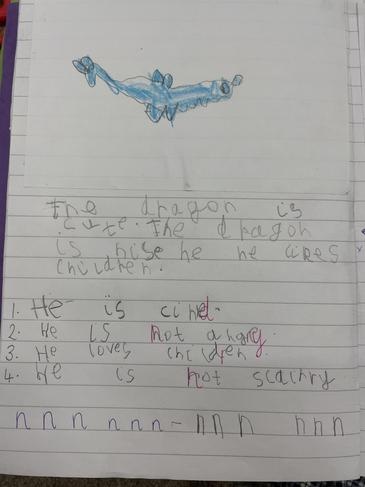 The dragon is
cute. The dragon
is nise he he likes
children.
1. He is cind.
2. He is not angry.
3. He loves children.
4. He is not scachry
n n n n n n - n n n n n n